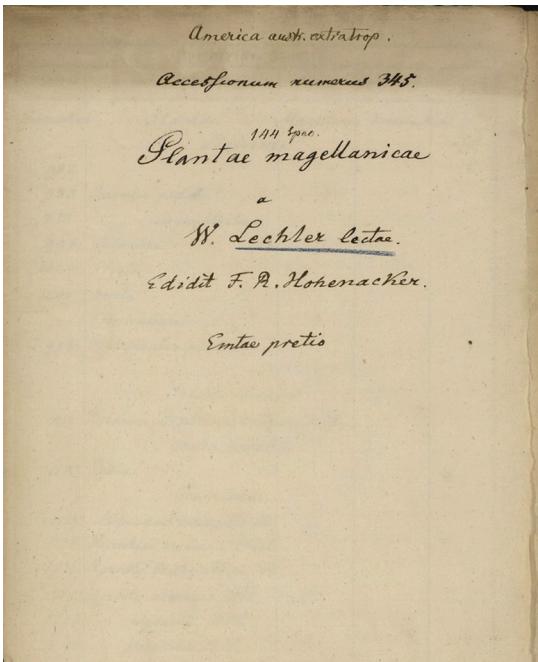 America austr. extratrop.
Accessionum numerus 345.
144 spec.
Plantae magellanicae
a
W. Lechler lectae.
Edidit F. R. Hohenacker.
Emtae pretio